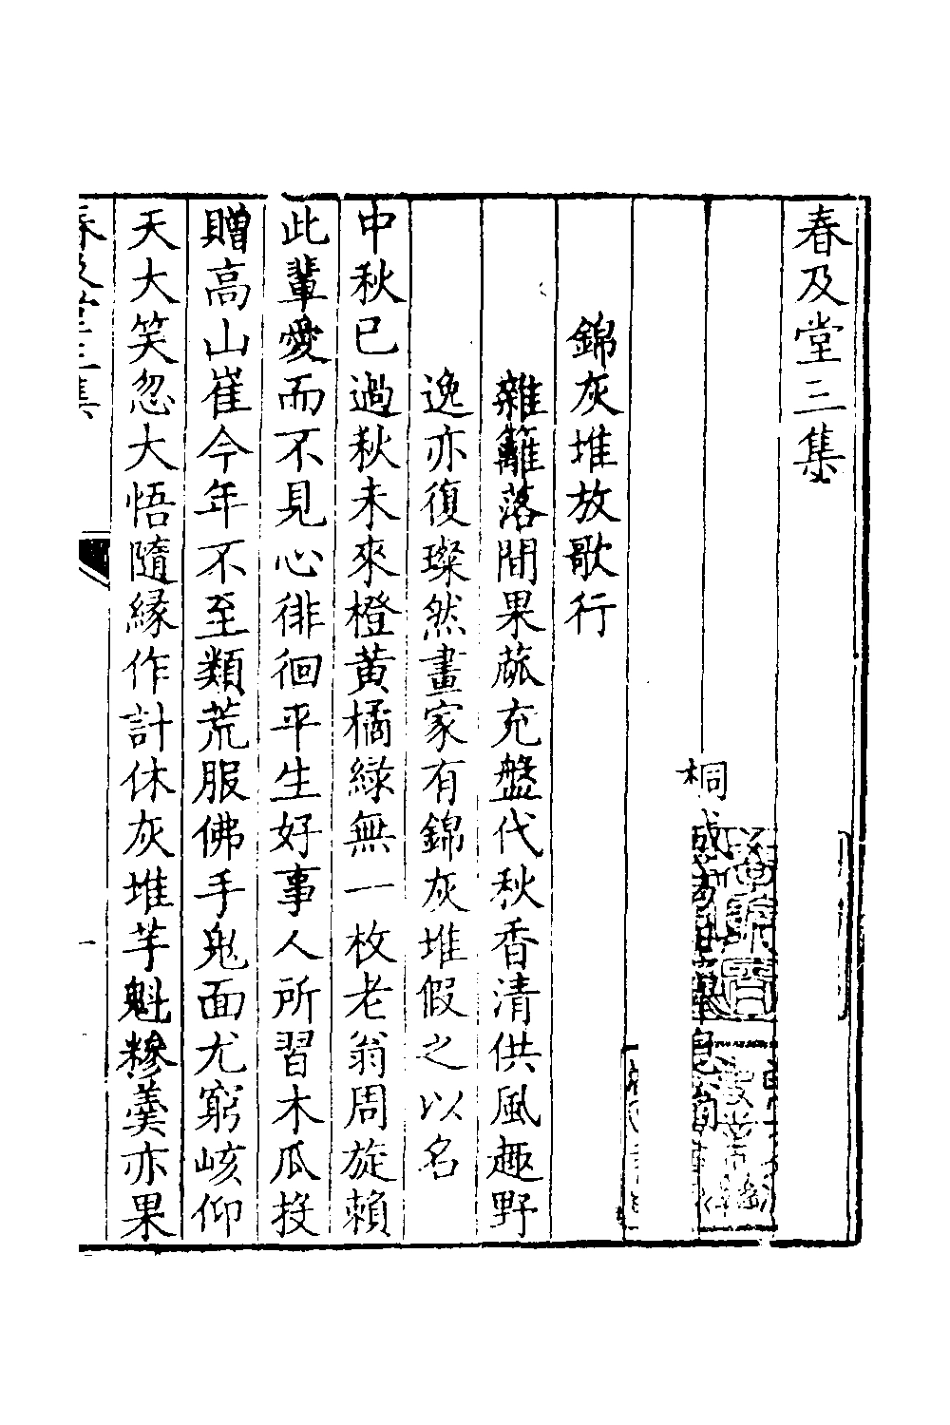 春及堂三集
桐城
錦灰堆放歌行
雜籬落間果蓏充盤代秋香清供風趣野
逸亦復璨然畫家有錦灰堆假之以名
中秋已過秋未來橙黄橘綠無一枚老翁周旋賴
此輩愛而不見心徘徊平生好事人所習木瓜投
贈高山崔今年不至類荒服佛手鬼面尤窮峐仰
天大笑忽大悟隨緣作計休灰堆芋魁糝羹亦果
春及堂三集
一